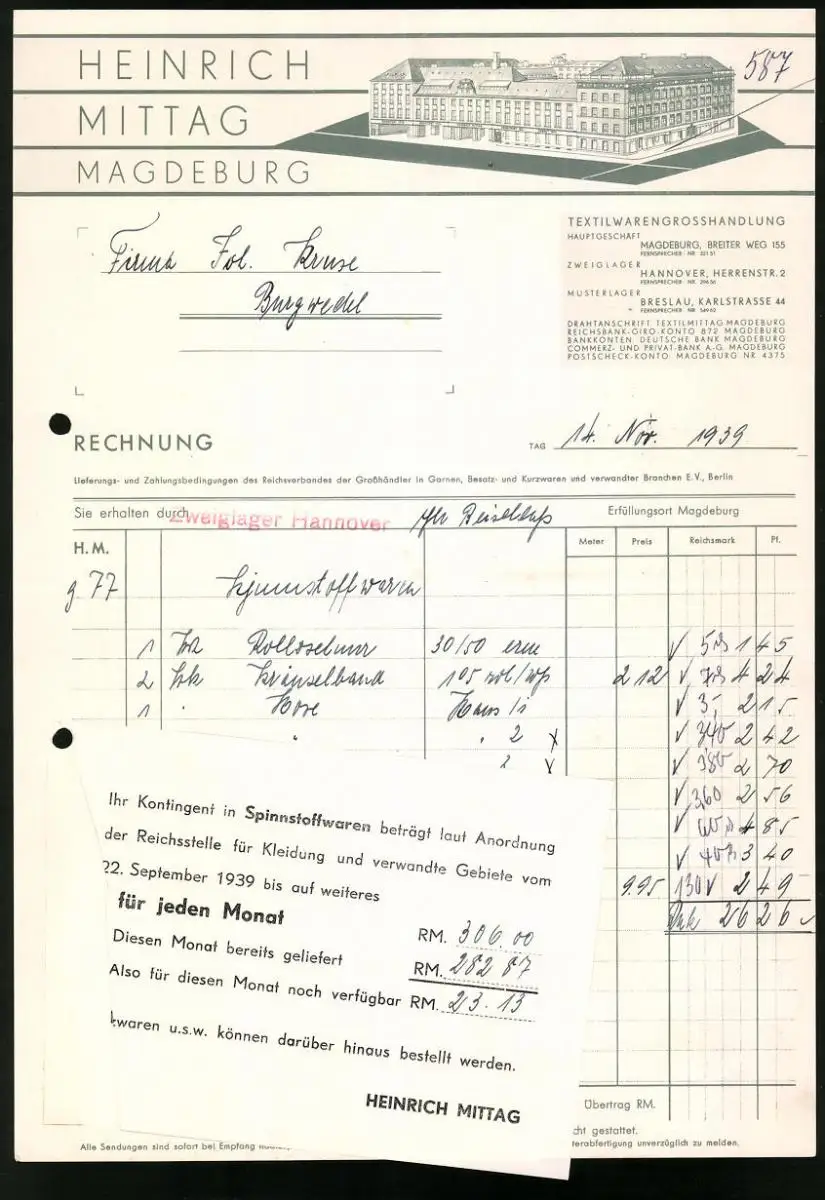 HEINRICH
MITTAG
MAGDEBURG
587
Firma Joh. Kruse
Burgwedel
TEXTILWARENGROSSHANDLUNG
HAUPTGESCHÄFT
MAGDEBURG, BREITER WEG 155
FERNSPRECHER NR 32151
ZWEIGLAGER
HANNOVER, HERRENSTR. 2
FERNSPRECHER NR
MUSTERLAGER
BRESLAU, KARLSTRASSE 44
FERNSPRECHER NR 54962
DRAHTANSCHRIFT TEXTILMITTAG MAGDEBURG
REICHSBANK-GIRO-KONTO 872 MAGDEBURG
BANKKONTEN: DEUTSCHE BANK MAGDEBURG
COMMERZ- UND PRIVAT-BANK A.-G. MAGDEBURG
POSTSCHECK-KONTO MAGDEBURG NR 4375
RECHNUNG
TAG 14. Nov. 1939
Lieferungs- und Zahlungsbedingungen des Reichsverbandes der Großhändler in Garnen, Besatz- und Kurzwaren und verwandter Branchen E.V., Berlin
Sie erhalten durch Zweiglager Hannover Erfüllungsort Magdeburg
H.M. Meter Preis Reichsmark Pf.
g 77 Spinnstoffwaren
1 30/50 1 45
2 Kräuselband 105 212 4 24
1 " Hose 3,- 2 15
" " 2 340 2 42
2 380 2 70
3,60 2 56
4 85
3 40
9.95 130 2 49
26 26
Ihr Kontingent in Spinnstoffwaren beträgt laut Anordnung
der Reichsstelle für Kleidung und verwandte Gebiete vom
22. September 1939 bis auf weiteres
für jeden Monat RM. 306.00
Diesen Monat bereits geliefert RM. 282 87
Also für diesen Monat noch verfügbar RM. 23.13
kwaren u.s.w. können darüber hinaus bestellt werden.
HEINRICH MITTAG
Übertrag RM.
cht gestattet.
Alle Sendungen sind sofort bei Empfang
terabfertigung unverzüglich zu melden.